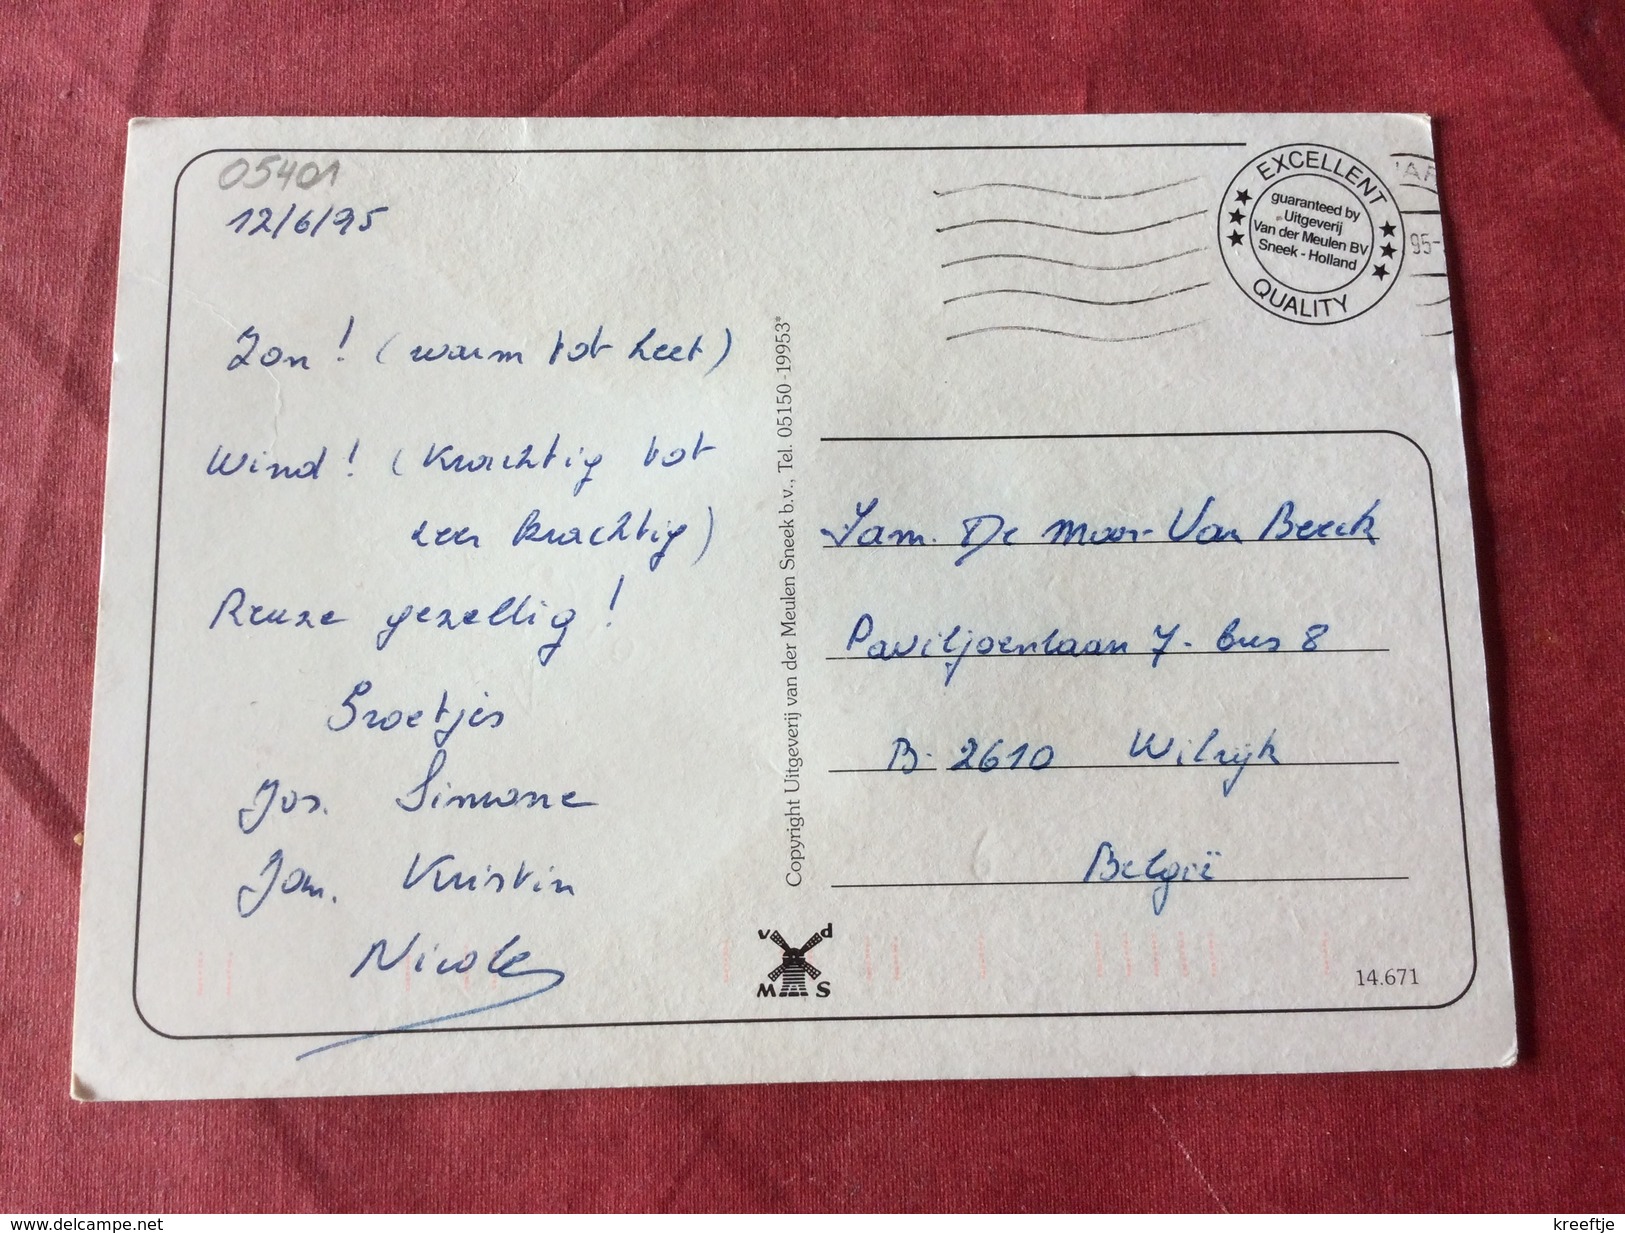 05401
12/6/95
Zon! (warm tot heet)
Wind! (Krachtig tot
zeer krachtig)
Reuze gezellig!
Groetjes
Jos. Simone
Jan. Kristin
Nicole
Copyright Uitgeverij van der Meulen Sneek b.v., Tel. 05150-19953*
EXCELLENT
guaranteed by
Uitgeverij
Van der Meulen BV
Sneek - Holland
QUALITY
95-
Fam. De Moor-Van Beeck
Paviljoenlaan 7 - bus 8
B. 2610 Wilrijk
België
v d
M S
14.671
delcampe.net
kreeftje